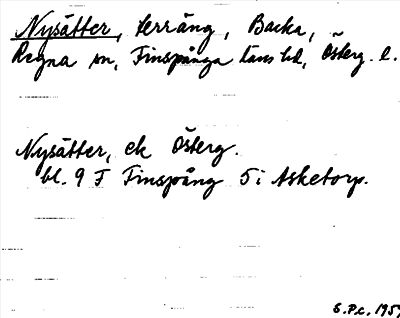 Nysätter, terräng, Backa,
Regna sn, Finspånga läns hd, Österg. l.
Nysätter, ek Österg.
bl. 9 F Finspång 5 i Asketorp.
S.P.c. 1959